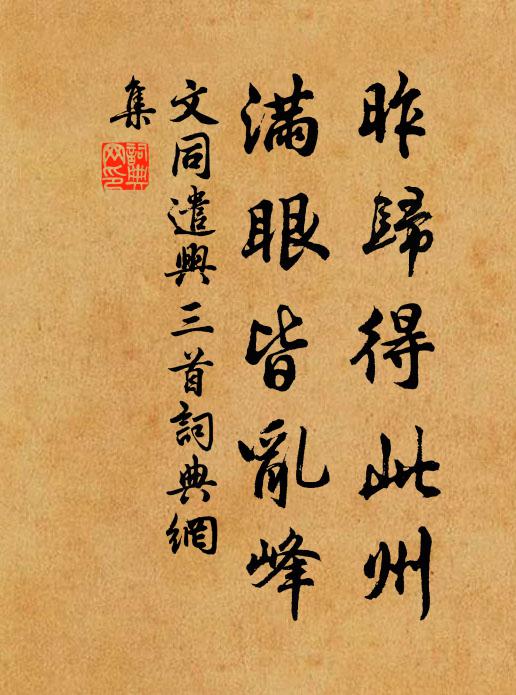 昨歸得此州
滿眼皆亂峰
文同遣興三首詞典網
集
詞典網印